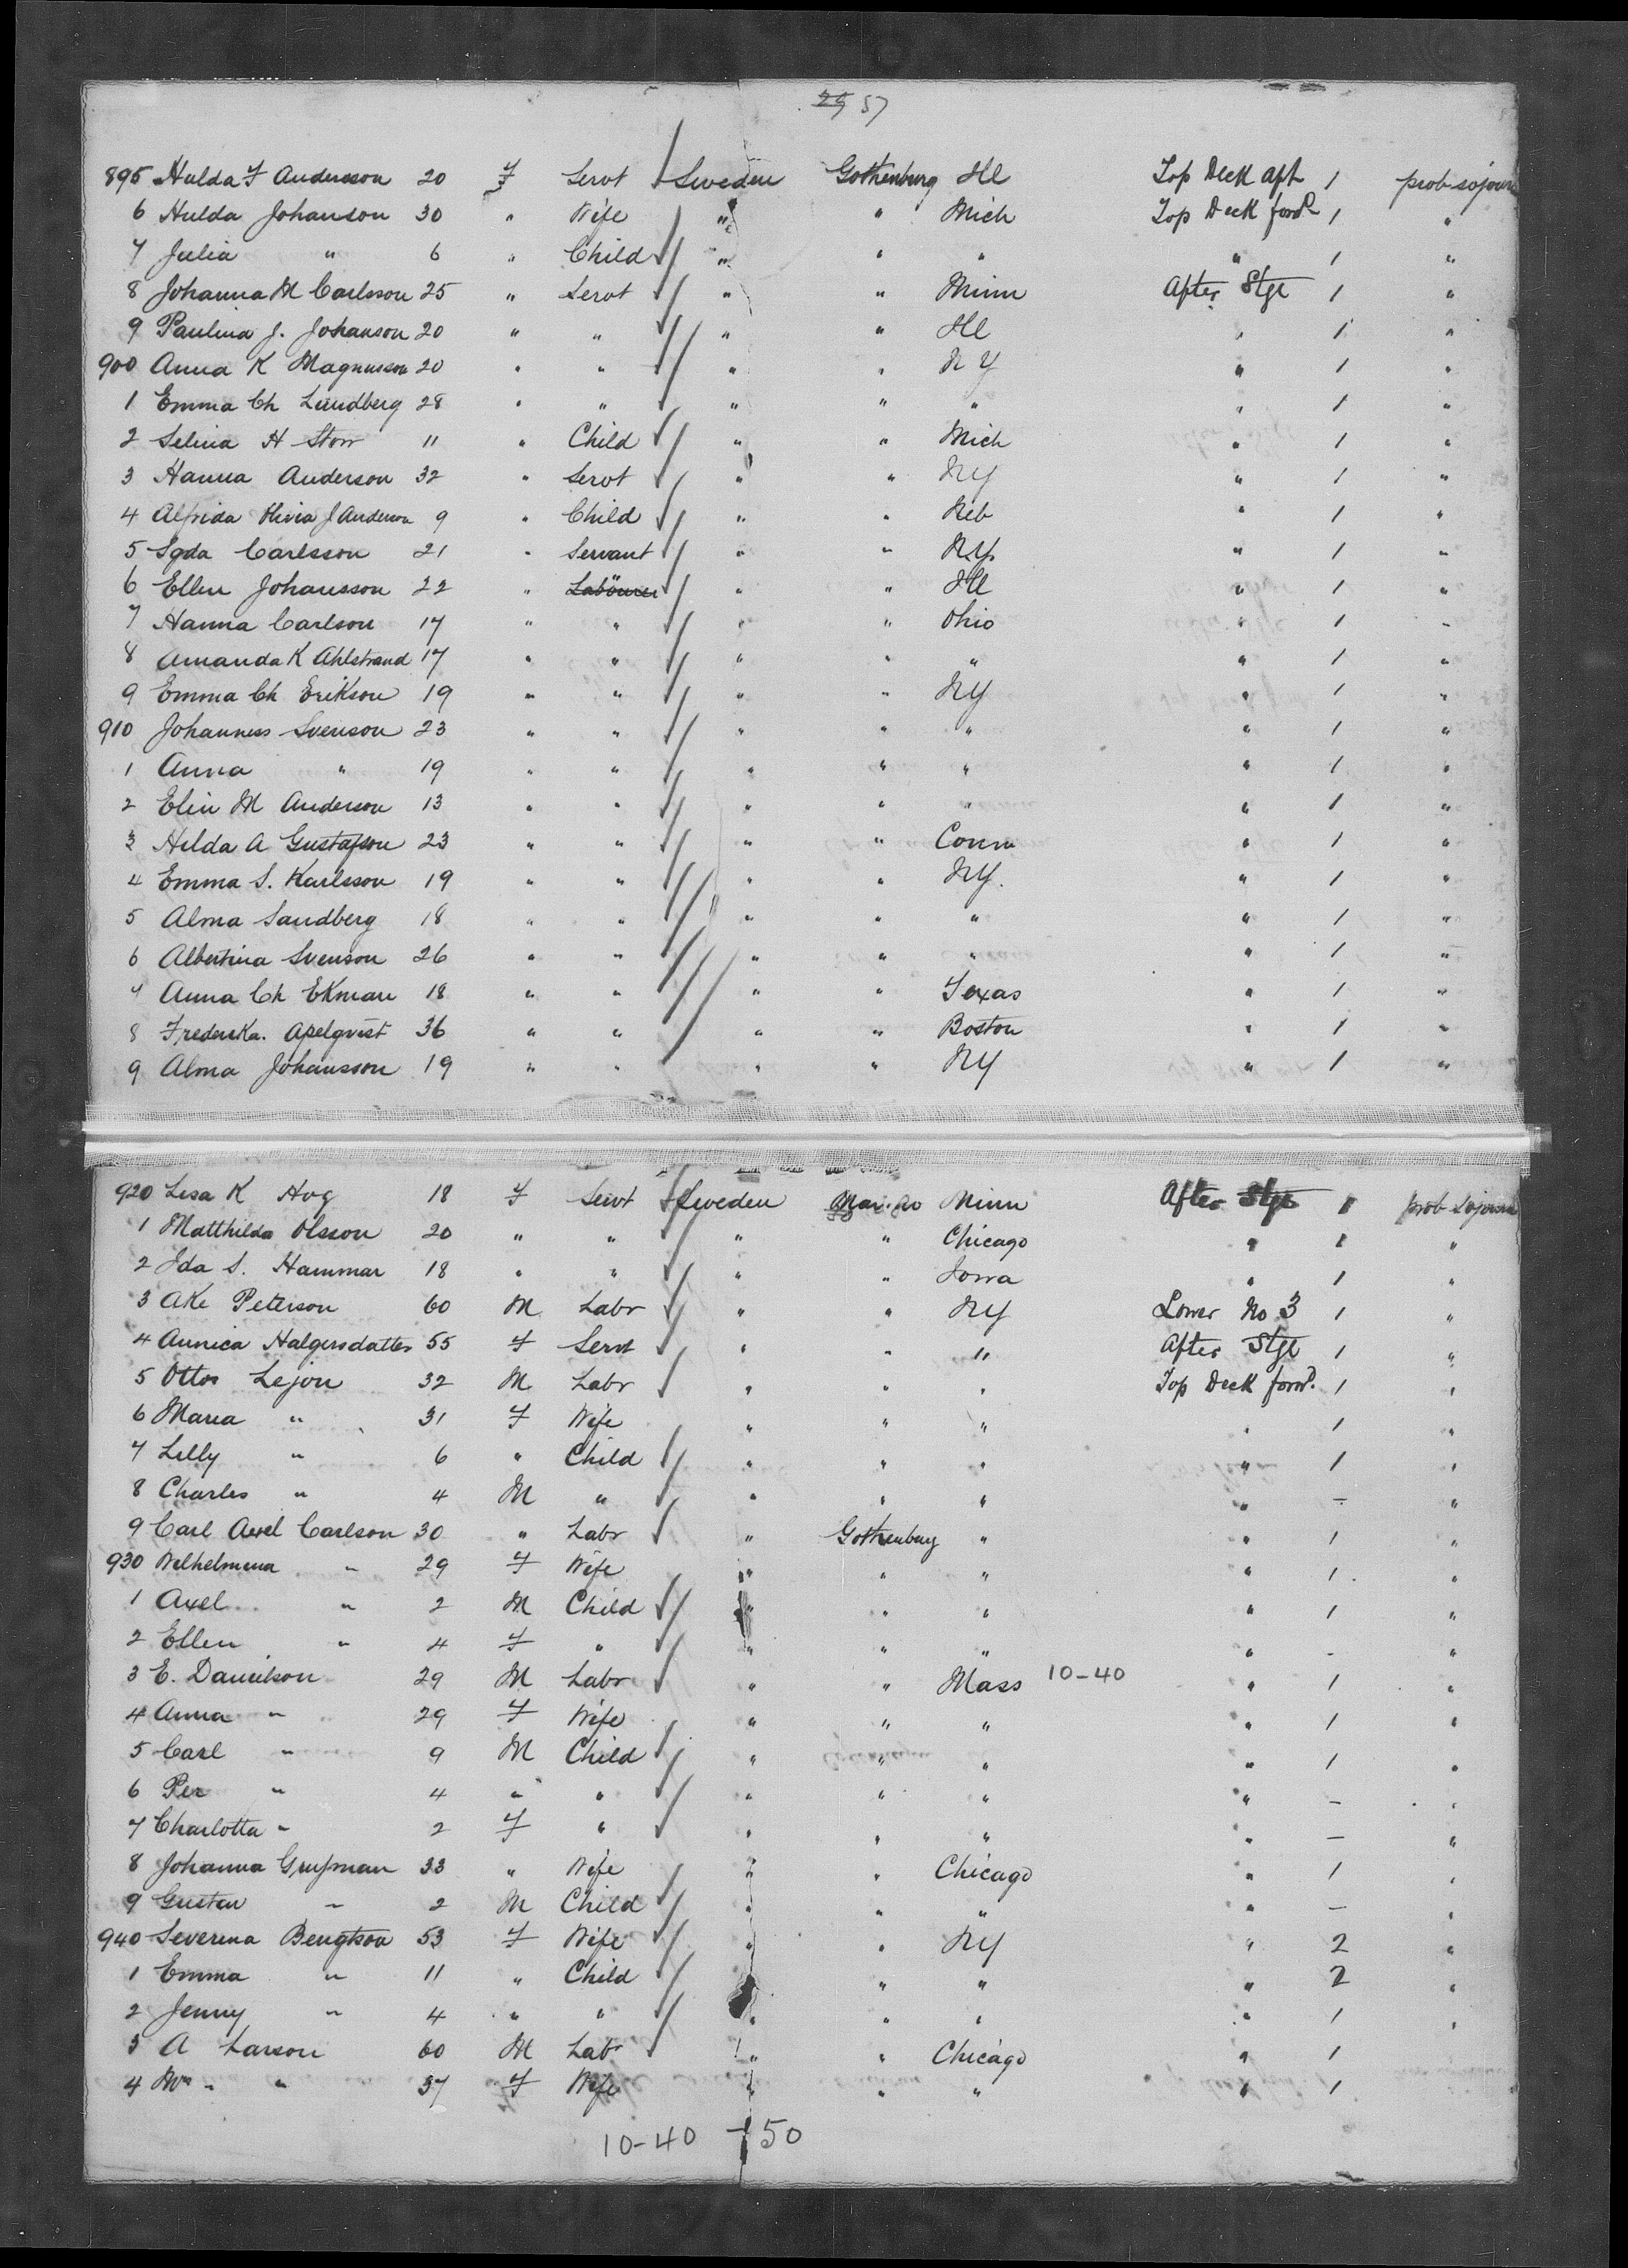 29 57
895 Hulda F Andersson 20 F Servt Sweden Gothenburg Ill Top Deck aft 1 prob sojourn
6 Hulda Johanson 30 " Wife " " Mich Top Deck forwd 1 "
7 Julia " 6 " Child " " " " 1 "
8 Johanna M Carlsson 25 " Servt " " Minn After Stge 1 "
9 Paulina J. Johanson 20 " " " " Ill " 1 "
900 Anna K Magnusson 20 " " " " N Y " 1 "
1 Emma Ch Lundberg 28 " " " " " " 1 "
2 Selina H Storr 11 " Child " " Mich " 1 "
3 Hanna Anderson 32 " Servt " " NY " 1 "
4 Alfrida Olivia J Anderson 9 " Child " " Neb " 1 "
5 Sgda Carlsson 21 " Servant " " N.Y. " 1 "
6 Ellen Johansson 22 " Labourer " " Ill " 1 "
7 Hanna Carlson 17 " " " " Ohio " 1 "
8 Amanda K Ahlstrand 17 " " " " " " 1 "
9 Emma Ch Erikson 19 " " " " NY " 1 "
910 Johannes Svenson 23 " " " " " " 1 "
1 Anna " 19 " " " " " " 1 "
2 Elin M Anderson 13 " " " " " " 1 "
3 Hilda A Gustafson 23 " " " " Conn " 1 "
4 Emma S. Karlsson 19 " " " " NY. " 1 "
5 Alma Sandberg 18 " " " " " " 1 "
6 Albertina Svenson 26 " " " " " " 1 "
7 Anna Ch Ekman 18 " " " " Texas " 1 "
8 Frederika. Apelqvist 36 " " " " Boston " 1 "
9 Alma Johansson 19 " " " " NY " 1 "
920 Lisa K Hog 18 F Servt Sweden Minn After Stge 1 prob sojourn
1 Matthilda Olsson 20 " " " " Chicago " 1 "
2 Ida S. Hammar 18 " " " " Iowa " 1 "
3 Ake Peterson 60 M Labr " " NY Lower No 3 1 "
4 Annica Halgersdatter 55 F Servt " " " After Stge 1 "
5 Ottos Lejon 32 M Labr " " " Top Deck forwd. 1 "
6 Maria " 31 F Wife " " " " 1 "
7 Lilly " 6 " Child " " " " 1 "
8 Charles " 4 M " " " " " - "
9 Carl Axel Carlson 30 " Labr " Gothenburg " " 1 "
930 Wilhelmina " 29 F Wife " " " " 1 "
1 Axel " 2 M Child " " " " 1 "
2 Ellen " 4 F " " " " " - "
3 E. Danielson 29 M Labr " " Mass 10-40 " 1 "
4 Anna " 29 F Wife " " " " 1 "
5 Carl " 9 M Child " " " " 1 "
6 Per " 4 " " " " " " - "
7 Charlotta " 2 F " " " " " - "
8 Johanna 33 " Wife " " Chicago " 1 "
9 Gustav " 2 M Child " " " " - "
940 Severina Bengtson 53 F Wife " " NY " 2 "
1 Emma " 11 " Child " " " " 2 "
2 Jenny " 4 " " " " " " 1 "
3 A Larson 60 M Lab " " Chicago " 1
4 Mrs " 37 F Wife " " " " 1
10-40 - 50